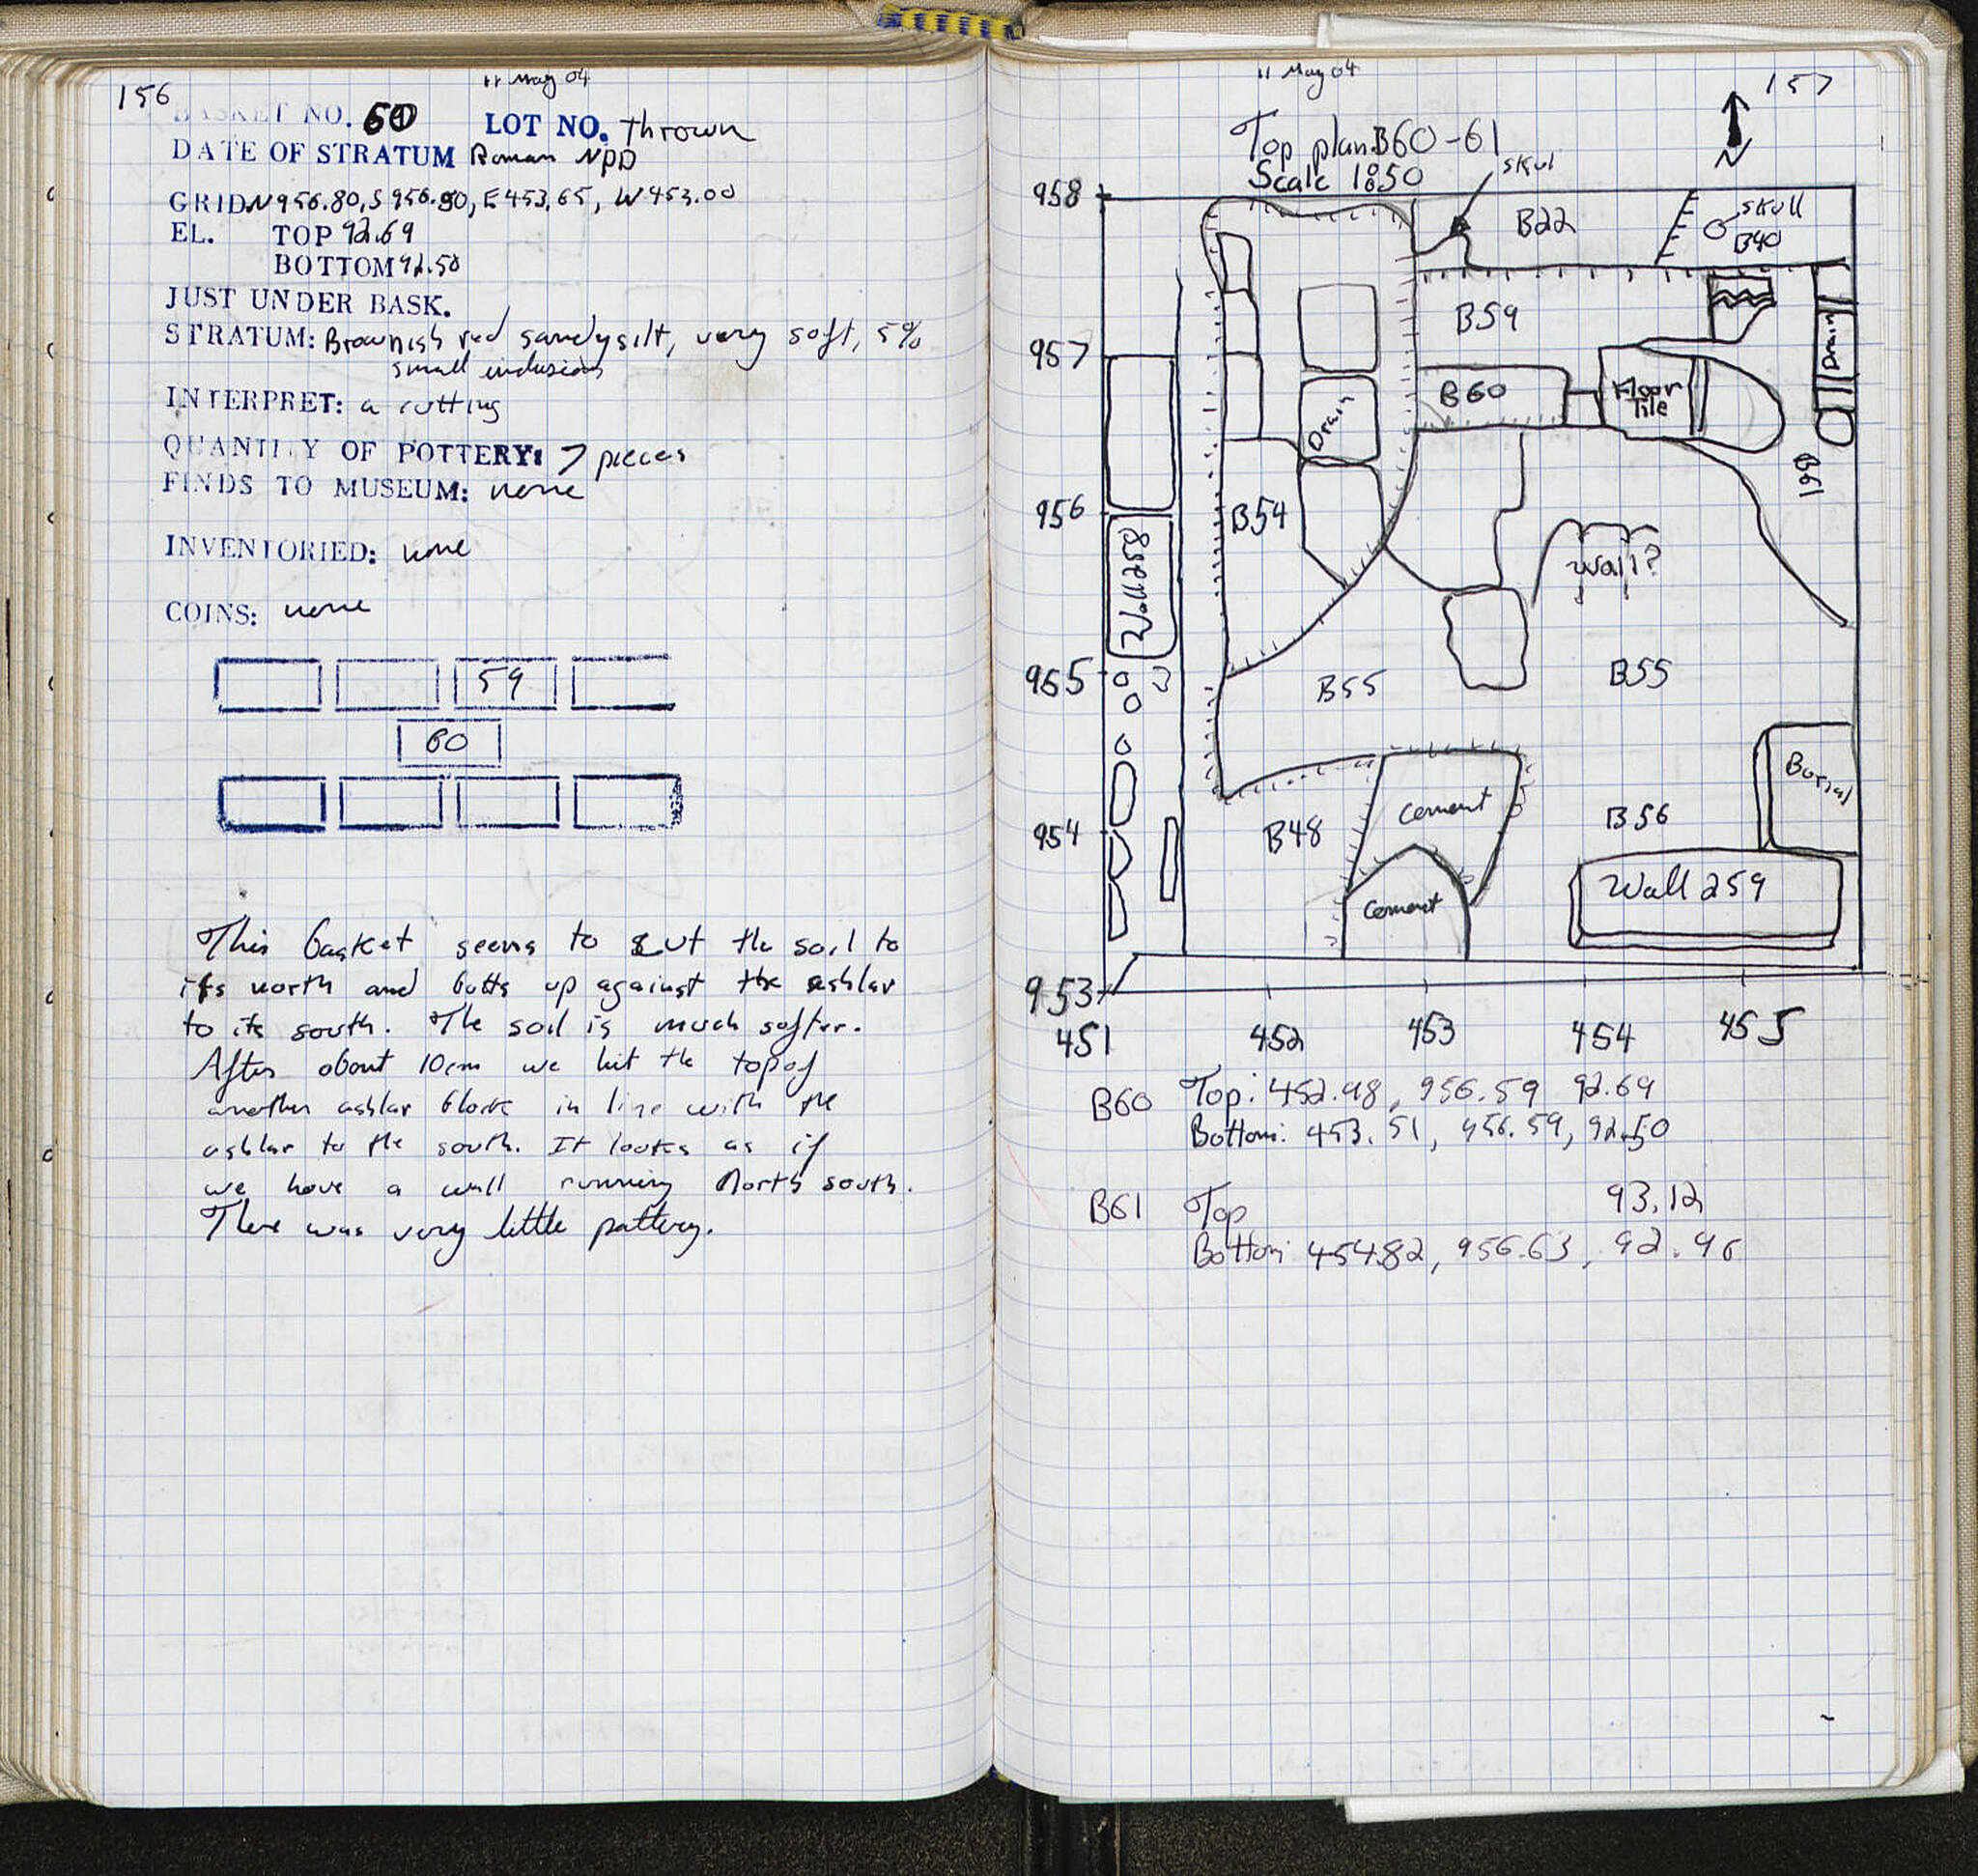 156
11 May 04
BASKET NO. 60 LOT NO. Thrown
DATE OF STRATUM Roman NPD
GRID N956.80, S 956.50, E 453.65, W 453.00
EL. TOP 92.69
BOTTOM 92.50
JUST UNDER BASK.
STRATUM: Brownish red sandy silt, very soft, 5%
small inclusions
INTERPRET: a cutting
QUANTITY OF POTTERY: 7 pieces
FINDS TO MUSEUM: none
INVENTORIED: none
COINS: none
59
60
This basket seems to cut the soil to
its north and butts up against the ashlar
to its south. The soil is much softer.
After about 10cm we hit the top of
another ashlar block in line with the
ashlar to the south. It looks as if
we have a wall running North south.
There was very little pottery.
11 May 04
157
Top plan B60-61
Scale 1:50
N
skul
958
B22
skull
B40
B59
Drain
957
B60
Floor
Tile
Drain
B61
956
B54
Wall 258
Wall?
955
B55
B55
Burial
954
B48
Cement
B56
Cement
Wall 259
953
451 452 453 454 455
B60 Top: 452.98, 956.59 92.69
Bottom: 453.51, 956.59, 92.50
B61 Top 93.12
Bottom: 454.82, 956.63, 92.96